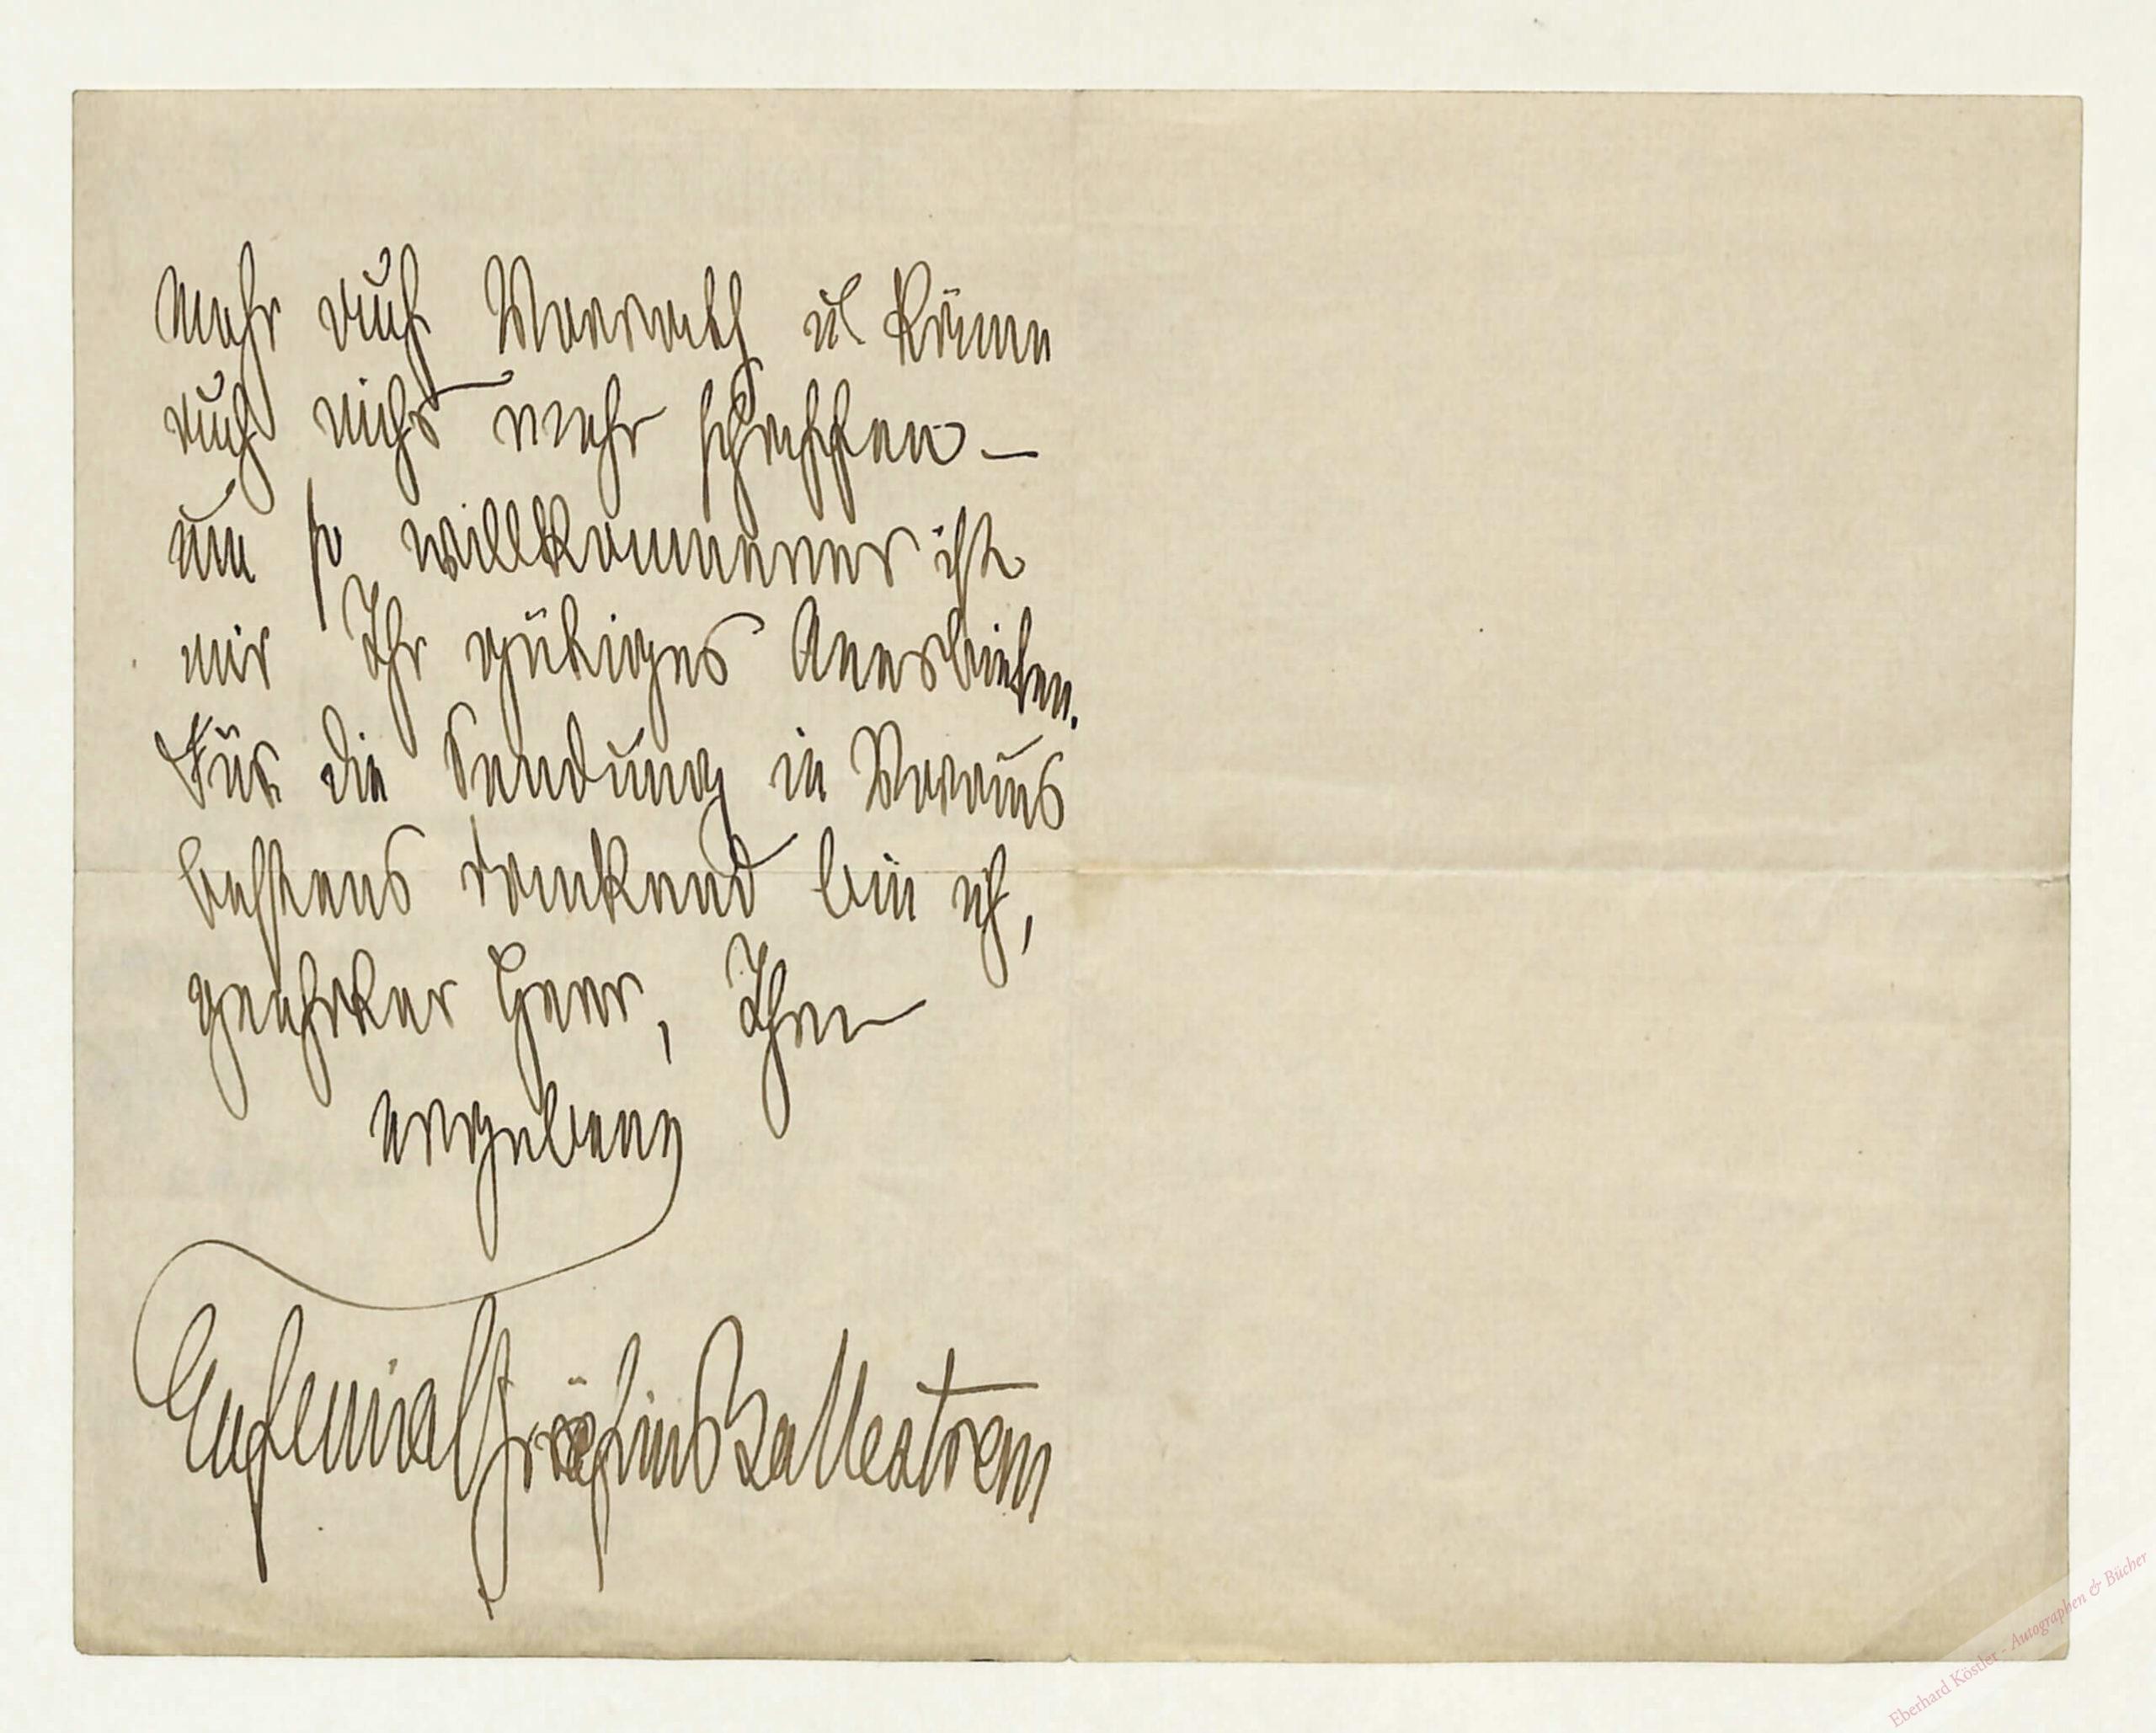 mehr auf Vorrath u. könne
auch nichts mehr schaffen —
um so willkommener ist
mir Ihr gütiges Anerbieten.
Für die Sendung in Voraus
bestens dankend bin ich,
geehrter Herr, Ihre
ergebene
Eufemia Gräfin Ballestrem
Eberhard Köstler - Autographen & Bücher